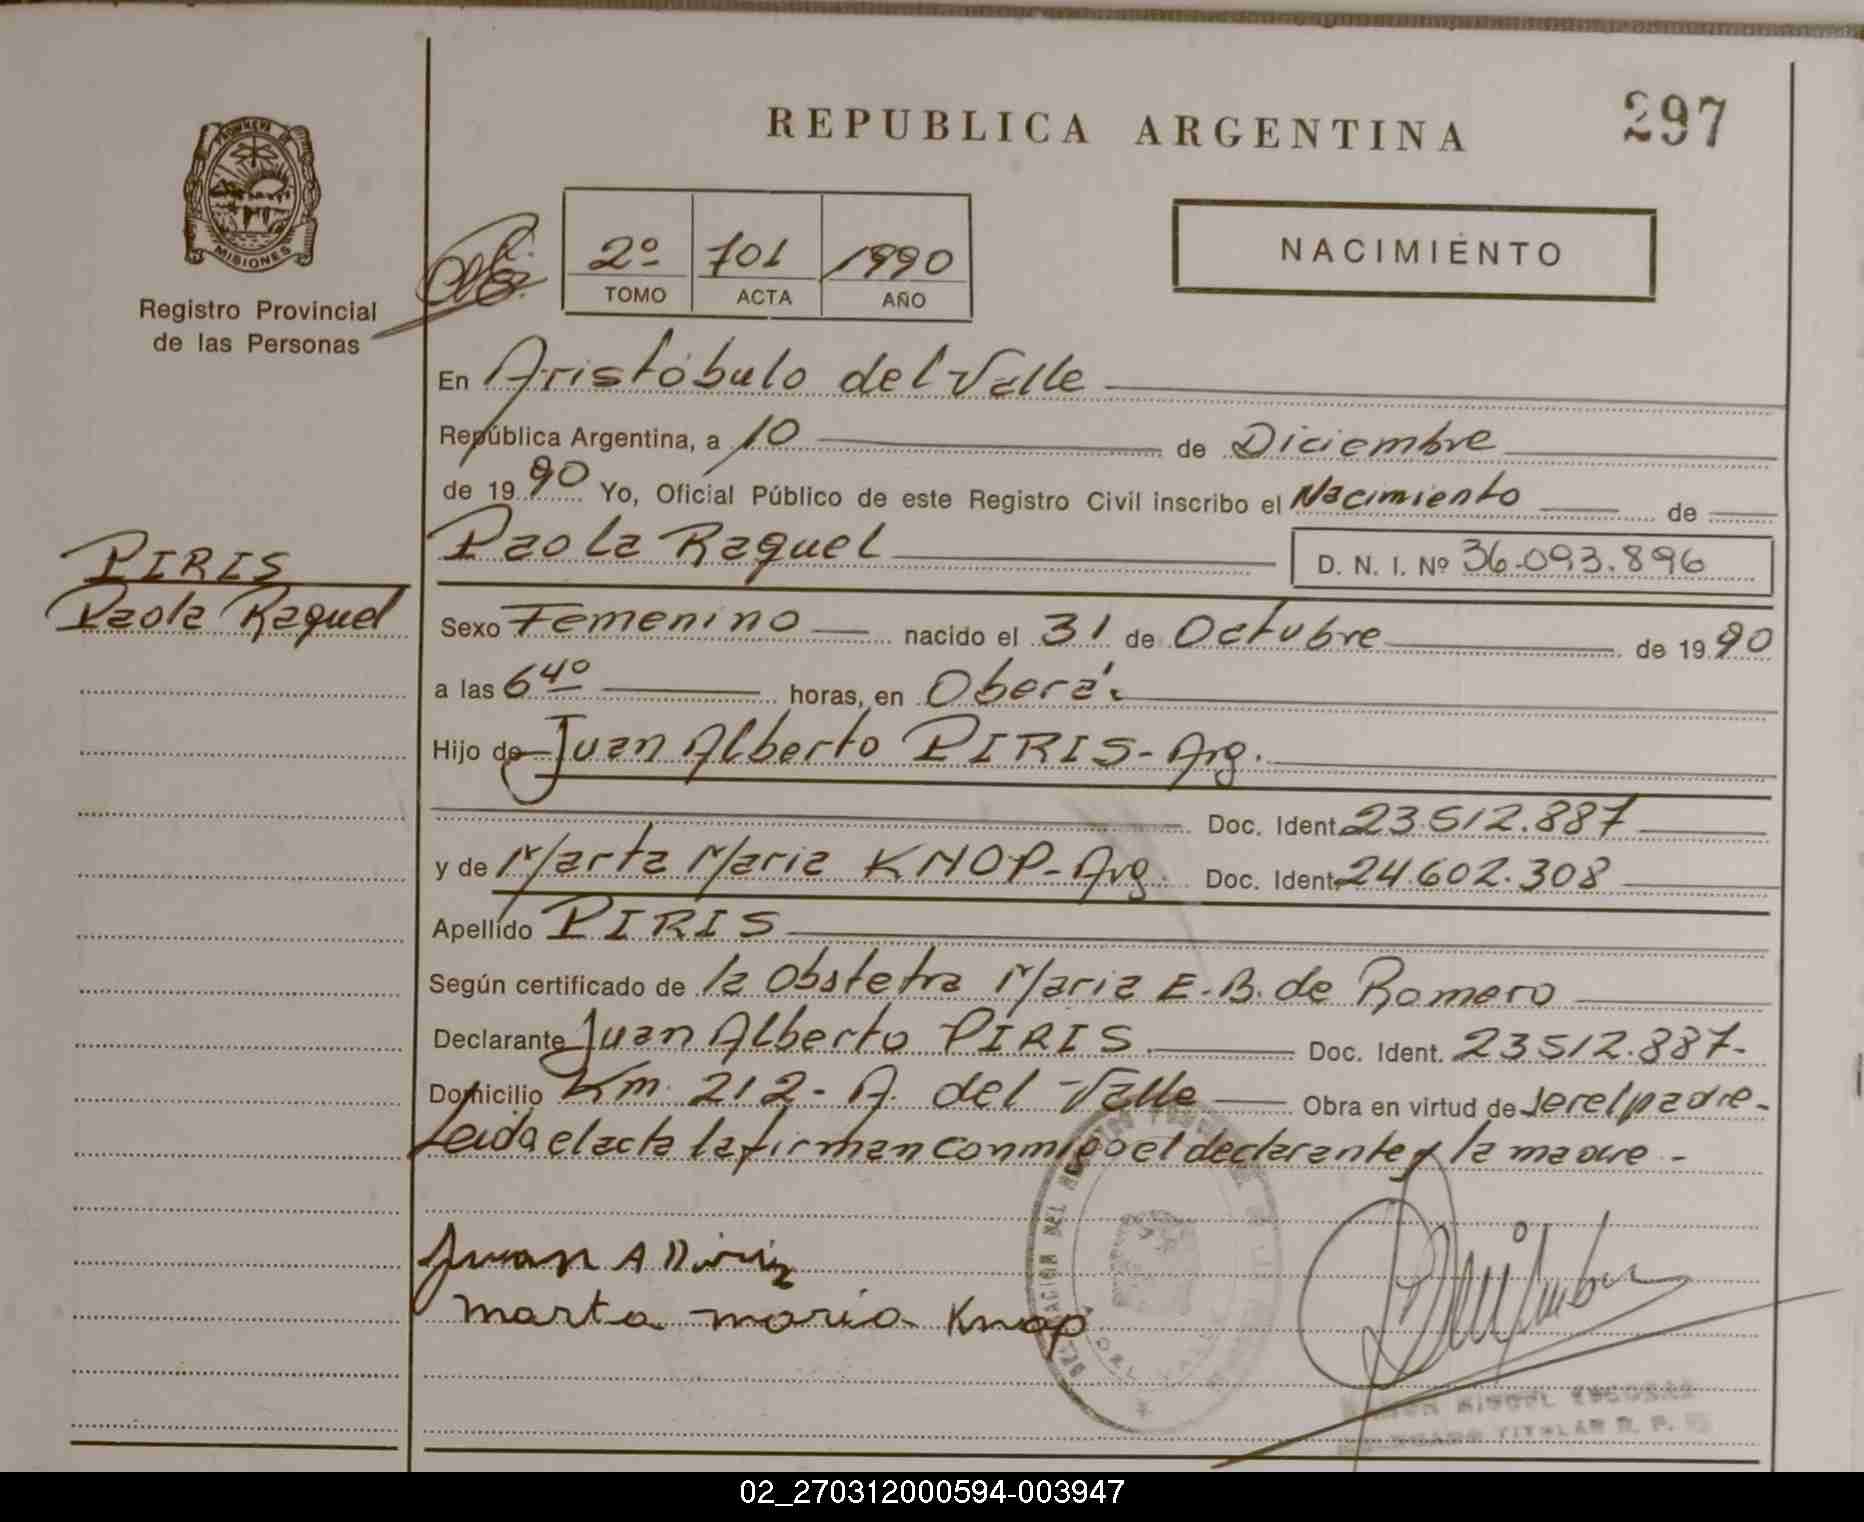 PROVINCIA DE
MISIONES
Registro Provincial
de las Personas
REPUBLICA ARGENTINA
297
2º 701 1990
TOMO ACTA AÑO
NACIMIENTO
En Aristóbulo del Valle
República Argentina, a 10 de Diciembre
de 1990 Yo, Oficial Público de este Registro Civil inscribo el Nacimiento de
Paola Raquel
D. N. I. Nº 36.093.896
PIRIS
Paola Raquel
Sexo Femenino nacido el 31 de Octubre de 1990
a las 6 40 horas, en Oberá.
Hijo de Juan Alberto PIRIS - Arg.
Doc. Ident. 23.512.887
y de Marta Maria KNOP - Arg. Doc. Ident. 24.602.308
Apellido PIRIS
Según certificado de la Obstetra Maria E. B. de Romero
Declarante Juan Alberto PIRIS Doc. Ident. 23512.887-
Domicilio Km. 212 - A. del Valle Obra en virtud de ser el padre -
Leida el acta la firman conmigo el declarante y la madre -
Juan A Piriz
marta maria Knop
DEL VALLE
MIGUEL ESCOBAR
TITULAR R. P.
02_270312000594-003947